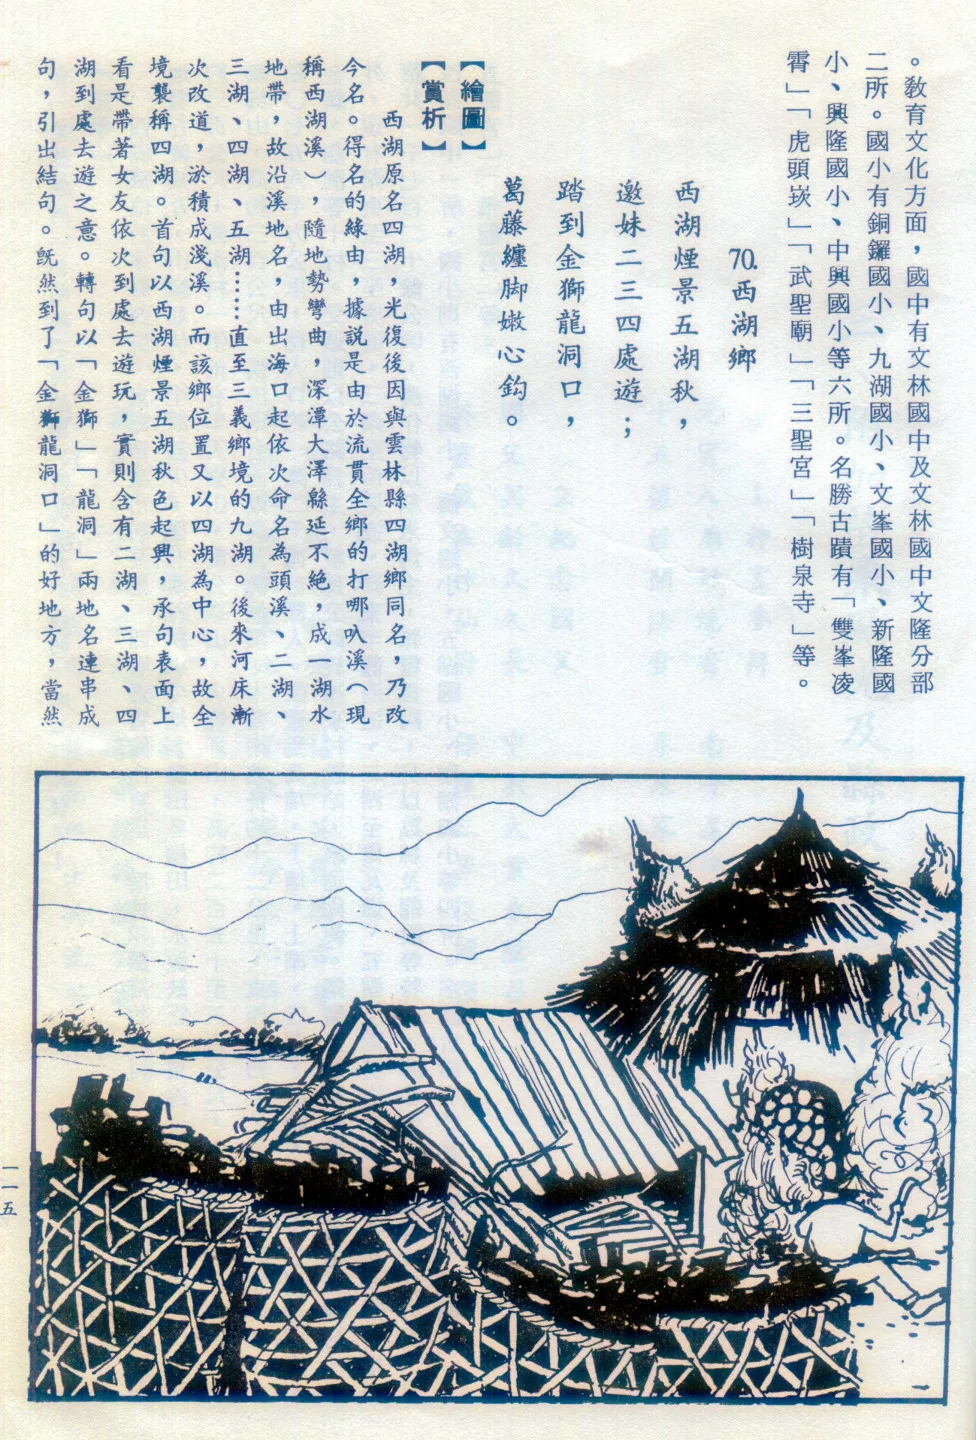 。教育文化方面，國中有文林國中及文林國中文隆分部
二所。國小有銅鑼國小、九湖國小、文峯國小、新隆國
小、興隆國小、中興國小等六所。名勝古蹟有「雙峯凌
霄」「虎頭崁」「武聖廟」「三聖宮」「樹泉寺」等。
70.西湖鄉
西湖煙景五湖秋，
邀妹二三四處遊；
踏到金獅龍洞口，
葛藤纏脚嫩心鈎。
【繪圖】
【賞析】
西湖原名四湖，光復後因與雲林縣四湖鄉同名，乃改
今名。得名的緣由，據說是由於流貫全鄉的打哪叭溪（現
稱西湖溪），隨地勢彎曲，深潭大澤緜延不絶，成一湖水
地帶，故沿溪地名，由出海口起依次命名為頭溪、二湖、
三湖、四湖、五湖……直至三義鄉境的九湖。後來河床漸
次改道，淤積成淺溪。而該鄉位置又以四湖為中心，故全
境襲稱四湖。首句以西湖煙景五湖秋色起興，承句表面上
看是帶著女友依次到處去遊玩，實則含有二湖、三湖、四
湖到處去遊之意。轉句以「金獅」「龍洞」兩地名連串成
句，引出結句。既然到了「金獅龍洞口」的好地方，當然
一一五